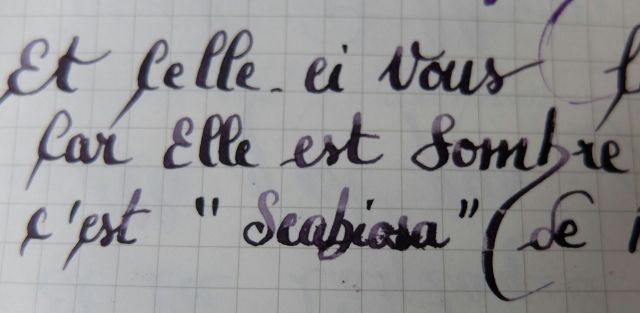 Et Celle-ci vous
Car Elle est Sombre
c'est "Scabiosa" (de